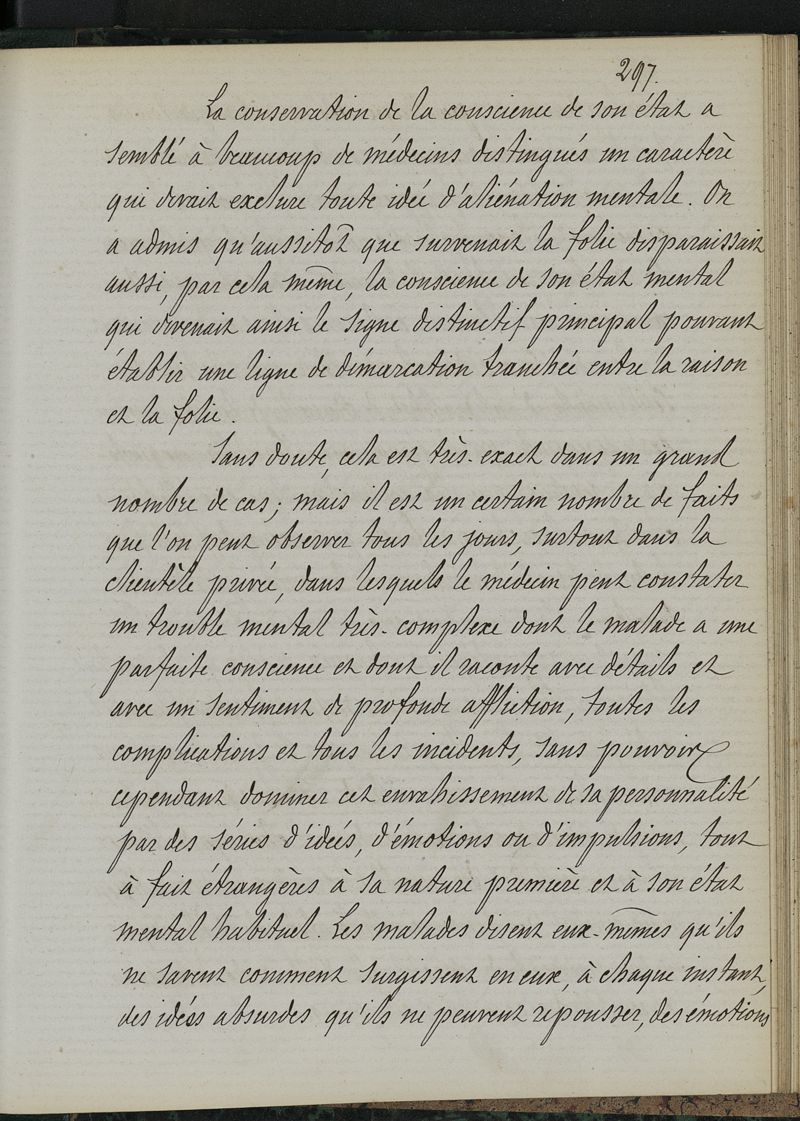 297.
La conservation de la conscience de son état a
semblé à beaucoup de médecins distingués un caractère
qui devait exclure toute idée d'aliénation mentale. On
a admis qu'aussitôt que survenait la folie disparaissait
aussi, par cela même, la conscience de son état mental
qui devenait ainsi le signe distinctif principal pouvant
établir une ligne de démarcation tranchée entre la raison
et la folie.
Sans doute, cela est très-exact dans un grand
nombre de cas; mais il est un certain nombre de faits
que l'on peut observer tous les jours, surtout dans la
clientèle privée, dans lesquels le médecin peut constater
un trouble mental très-complexe dont le malade a une
parfaite conscience et dont il raconte avec détails et
avec un sentiment de profonde affliction, toutes les
complications et tous les incidents, sans pouvoir
cependant dominer cet envahissement de sa personnalité
par des séries d'idées, d'émotions ou d'impulsions, tout
à fait étrangères à sa nature première et à son état
mental habituel. Les malades disent eux-mêmes qu'ils
ne savent comment surgissent en eux, à chaque instant,
des idées absurdes qu'ils ne peuvent repousser, des émotions